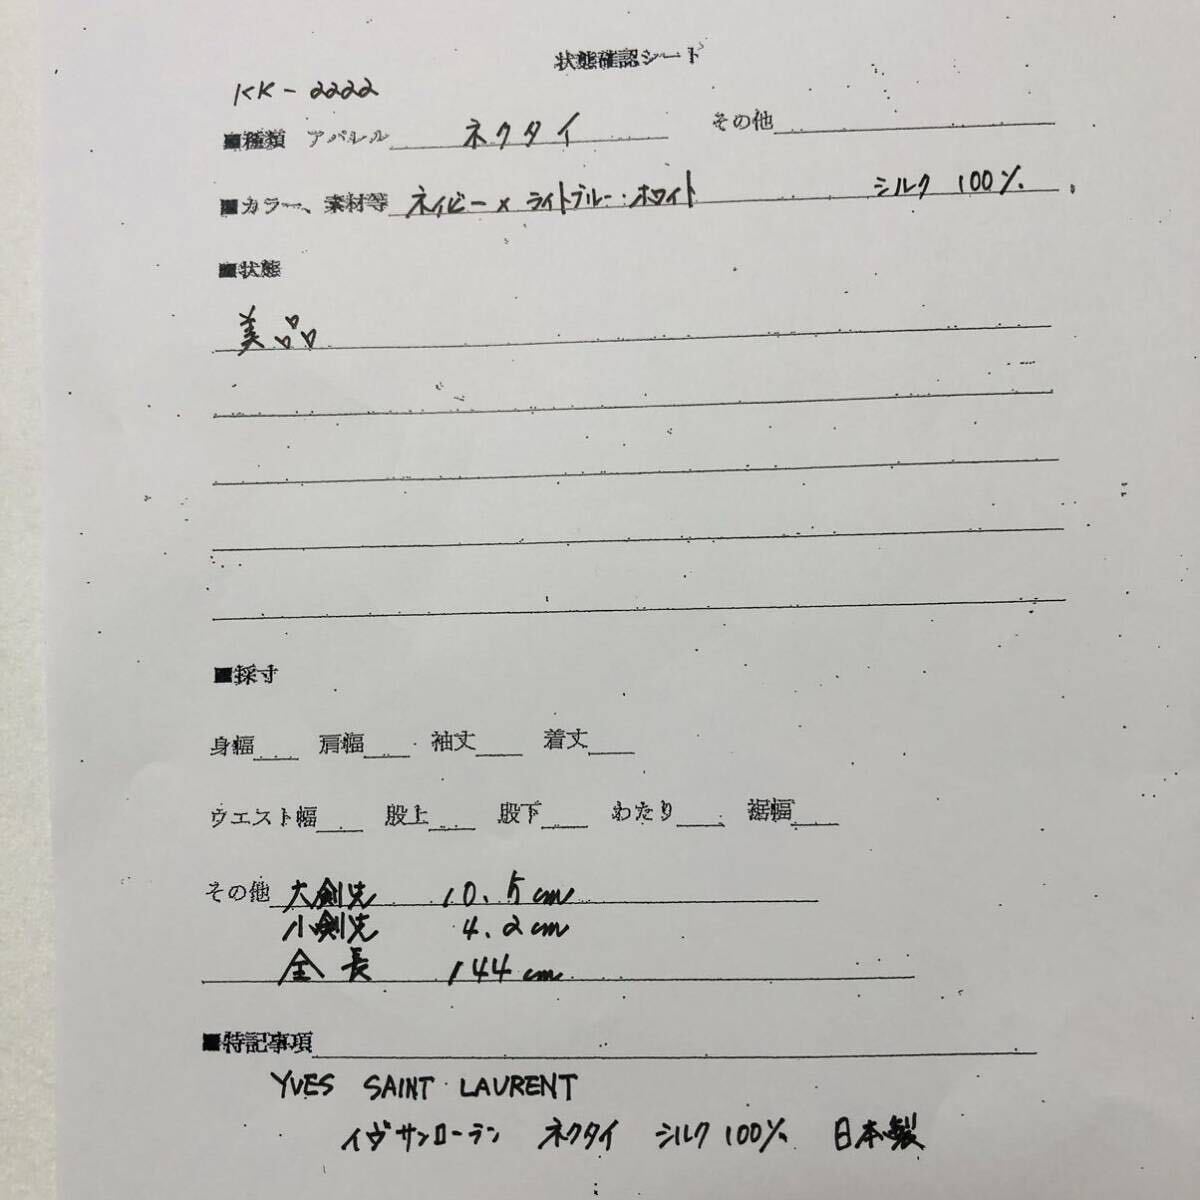 状態確認シート
KK-2222
■種類 アパレル ネクタイ その他
■カラー、素材等 ネイビー×ライトブルー・ホワイト シルク 100%
■状態
美品
■採寸
身幅 肩幅 袖丈 着丈
ウエスト幅 股上 股下 わたり 裾幅
その他 大剣先 10.5cm
小剣先 4.2cm
全長 144cm
■特記事項
YVES SAINT LAURENT
イヴサンローラン ネクタイ シルク100% 日本製